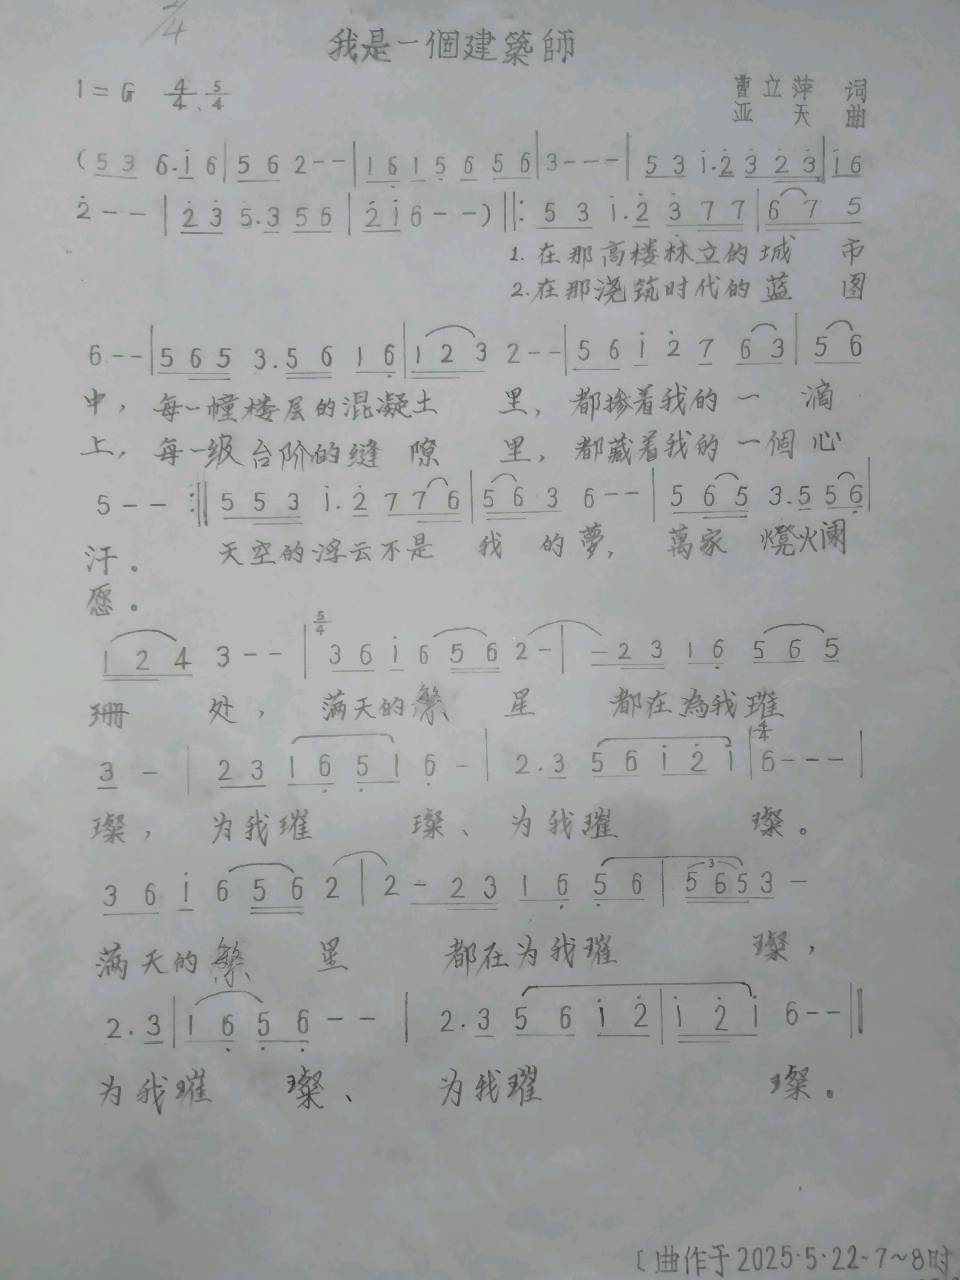 2/4
我是一個建築師
1=G 4/4、5/4 曹立萍 词
亚天 曲
(5 3 6.i 6|5 6 2--|1 6 1 5 6 5 6|3---|5 3 i.2 3 2 3|i 6
2--|2 3 5.3 5 6|2 i 6--)||:5 3 i.2 3 7 7|6 7 5
1.在那高楼林立的城 市
2.在那浇筑时代的蓝 图
6--|5 6 5 3.5 6 1 6|1 2 3 2--|5 6 i 2 7 6 3|5 6
中，每一幢楼层的混凝土 里，都掺着我的一 滴
上，每一级台阶的缝隙 里，都藏着我的一個心
5--:||5 5 3 i.2 7 7 6|5 6 3 6--|5 6 5 3.5 5 6|
汗。 天空的浮云不是 我 的夢， 萬家 燈火阑
愿。
1 2 4 3--|5/4 3 6 i 6 5 6 2-|-2 3 1 6 5 6 5
珊 处， 满天的繁 星 都在為我璀
3-|2 3 1 6 5 1 6-|2.3 5 6 i 2 i|4/4 6---|
璨，为我璀 璨、为我璀 璨。
3 6 i 6 5 6 2|2-2 3 1 6 5 6|5 6 5 3 3-
满天的繁 星 都在为我璀 璨，
2.3|1 6 5 6--|2.3 5 6 i 2|i 2 i 6--||
为我璀 璨、 为我璀 璨。
[曲作于2025.5.22-7~8时